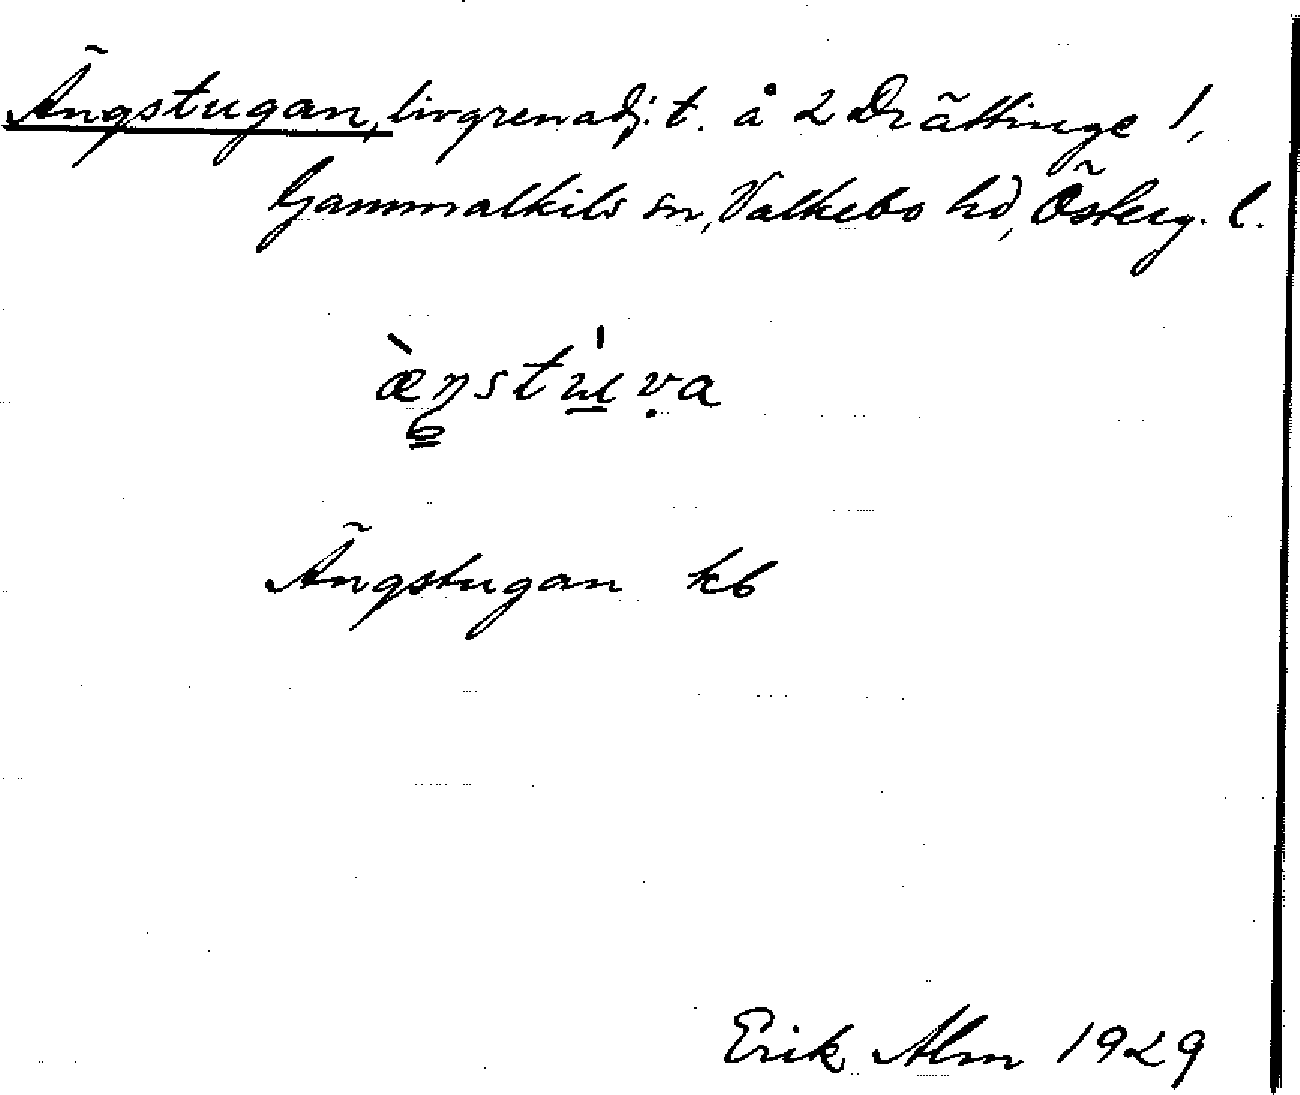 Ängstugan, livgrenadj. t. å 2 Drättinge 1,
Gammalkils sn, Valkebo hd, Österg. l.
Ängstugan kb
Erik Alm 1929